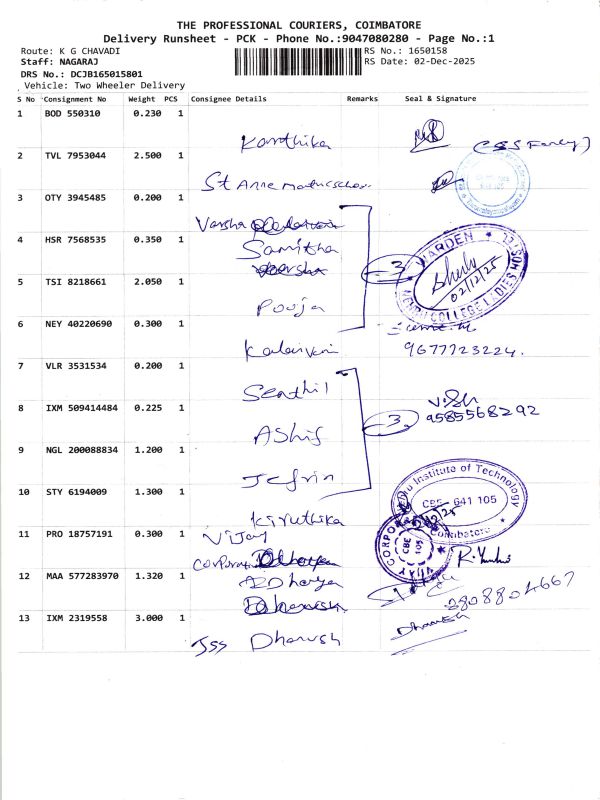 THE PROFESSIONAL COURIERS, COIMBATORE
Delivery Runsheet - PCK - Phone No.:9047080280 - Page No.:1
Route: K G CHAVADI RS No.: 1650158
Staff: NAGARAJ RS Date: 02-Dec-2025
DRS No.: DCJB165015801
Vehicle: Two Wheeler Delivery
S No Consignment No Weight PCS Consignee Details Remarks Seal & Signature
1 BOD 550310 0.230 1
Karthika
2 TVL 7953044 2.500 1
St Anne
3 OTY 3945485 0.200 1
Varsha
4 HSR 7568535 0.350 1
Samitha
3 WARDEN
NEHRU COLLEGE LADIES HOSTEL
02/12/25
5 TSI 8218661 2.050 1
Pooja
6 NEY 40220690 0.300 1
Kalaivani 9677723224.
7 VLR 3531534 0.200 1
Senthil
8 IXM 509414484 0.225 1
3 9585568292
Ashif
9 NGL 200088834 1.200 1
Jefrin
Institute of Technology
10 STY 6194009 1.300 1 CBE- 641 105
Coimbatore
Kiruthika
11 PRO 18757191 0.300 1
Vijay
CBE 105
12 MAA 577283970 1.320 1
Dharya
13 IXM 2319558 3.000 1
Dharush
JSS Dharush